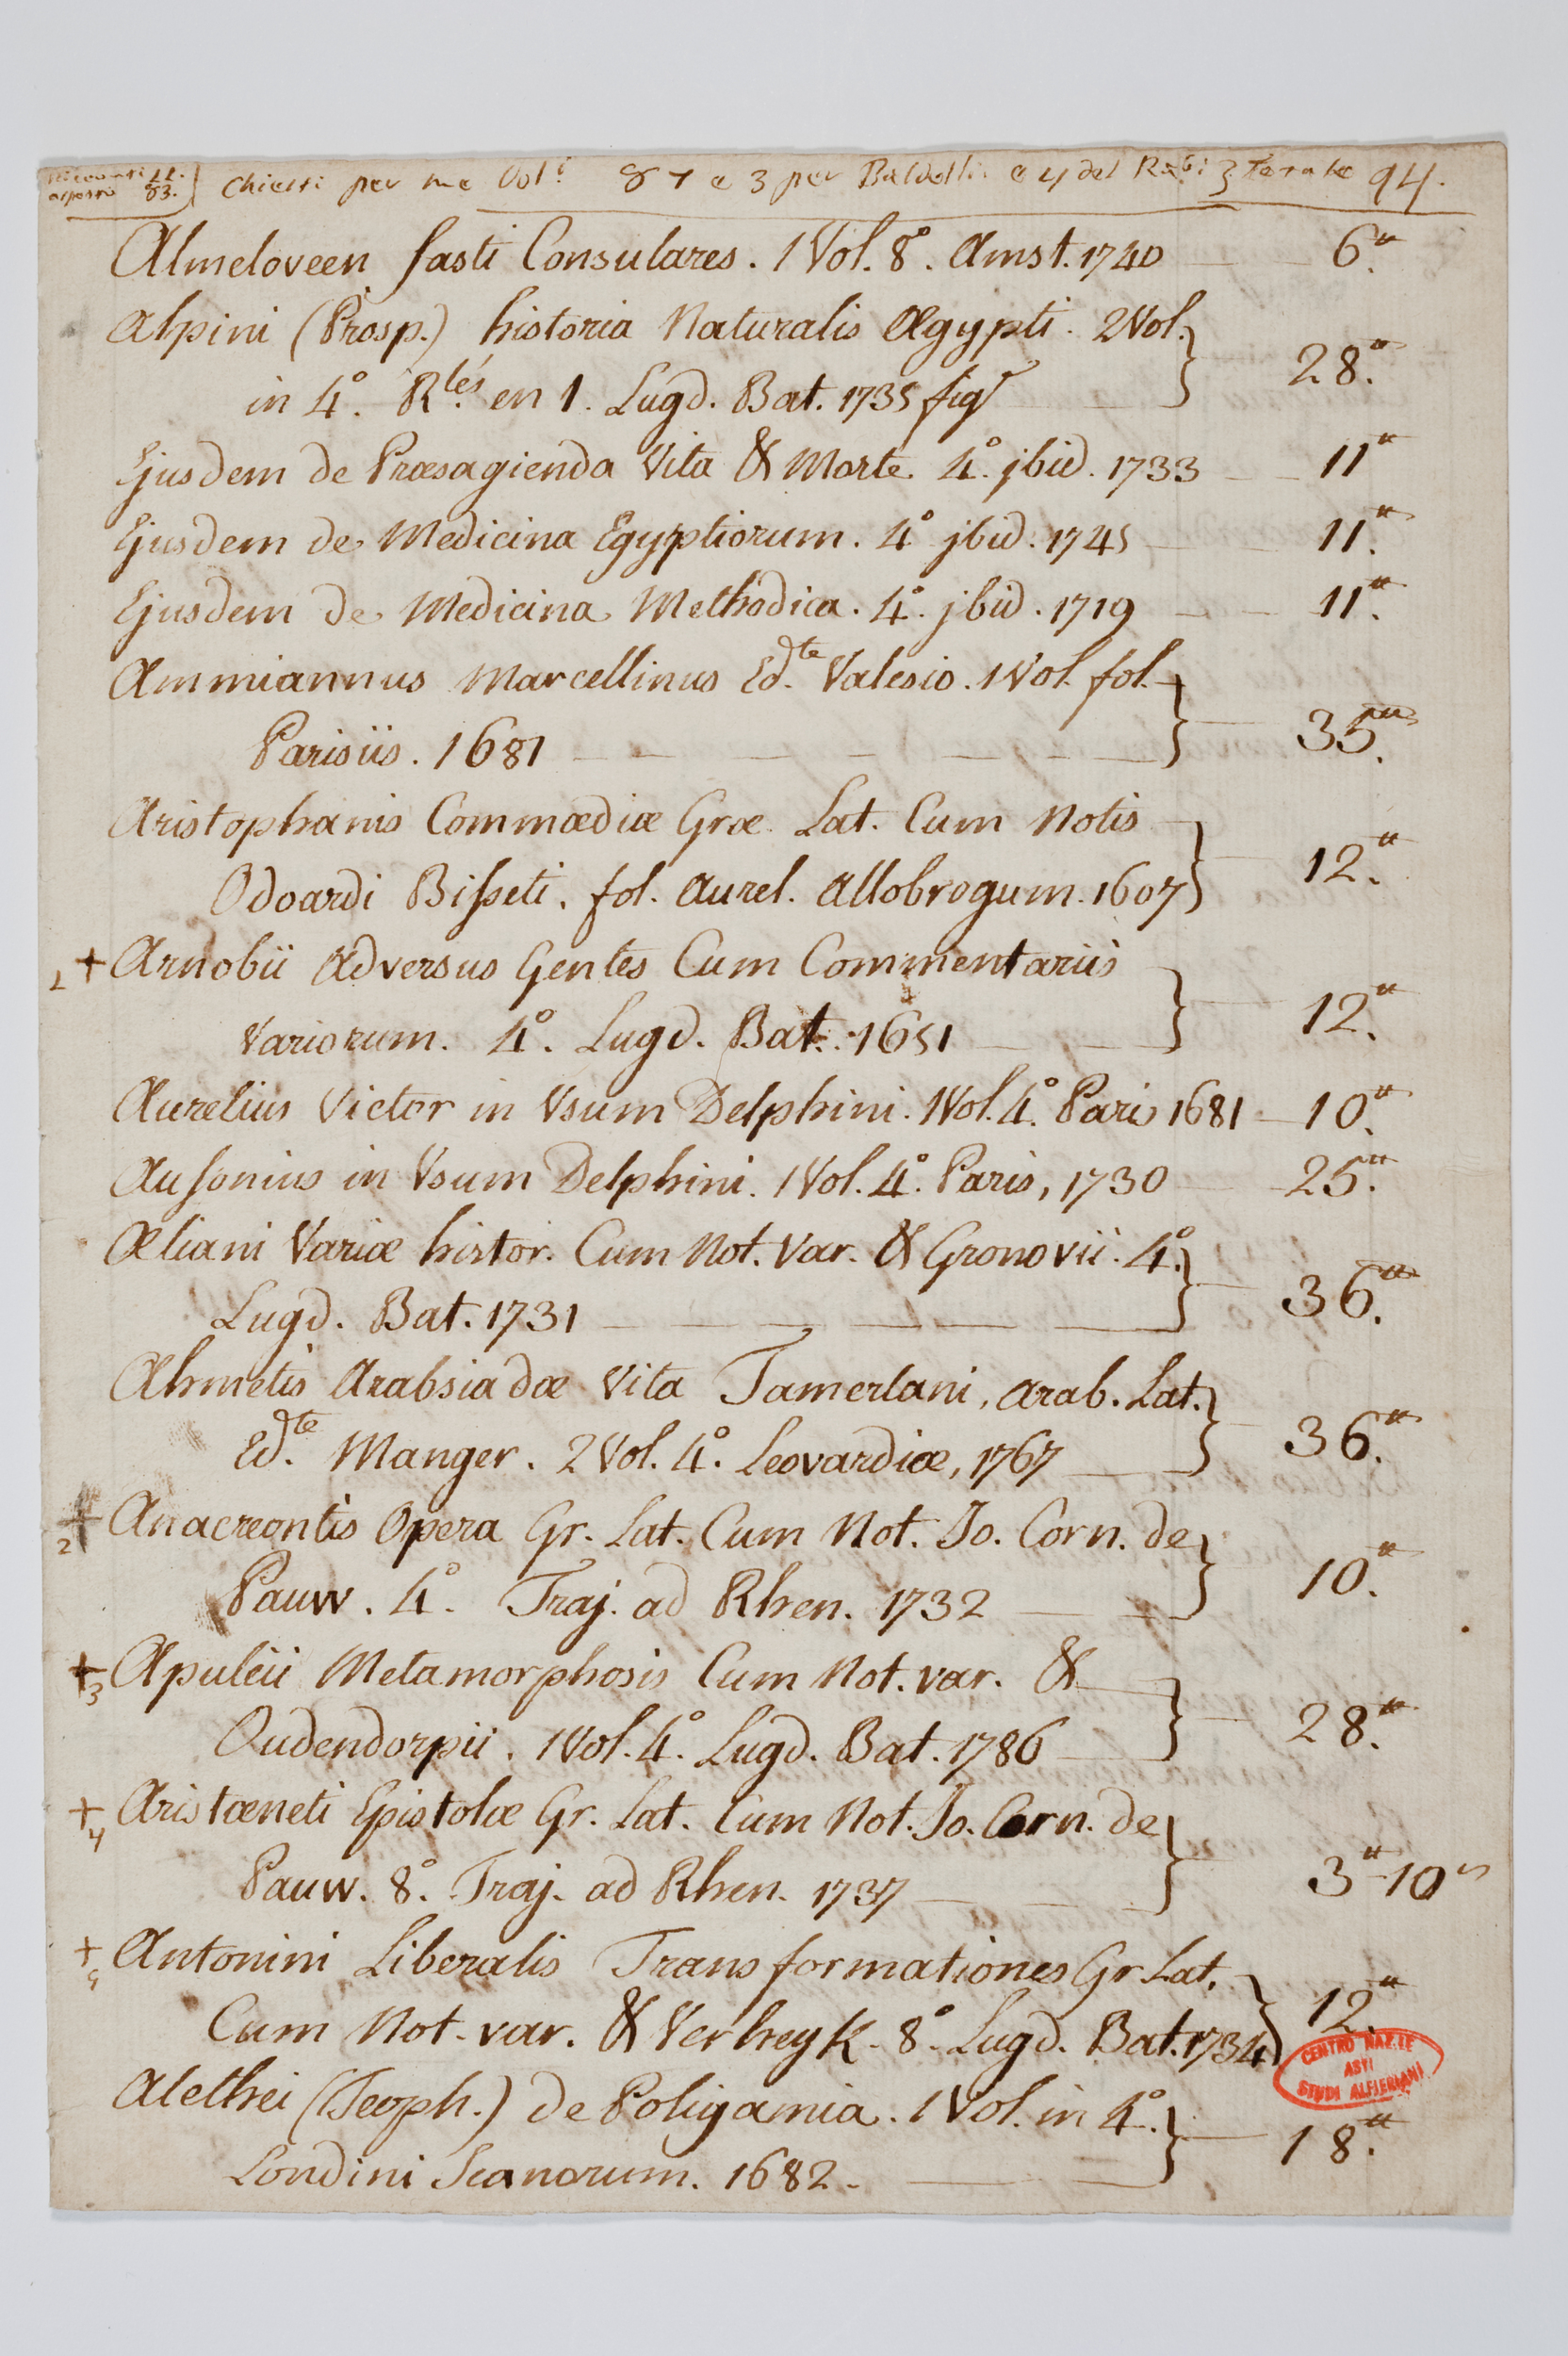 Chiesti per me Vol.i 87 e 3 per Baldelli e 4 del 94.
Almeloveen fasti Consulares. 1 Vol. 8°. Amst. 1740 6."
Alpini (Prosp.) historia Naturalis Ægypti. 2 Vol.
in 4°. R.lés en 1. Lugd. Bat. 1735 fig 28."
Ejusdem de Præsagienda Vita & Morte. 4°. jbid. 1733 11"
Ejusdem de Medicina Egyptiorum. 4° jbid. 1745 11."
Ejusdem de Medicina Methodica. 4°. jbid. 1719 11."
Ammiannus Marcellinus Ed.te Valesio. 1 Vol. fol.
Parisiis. 1681 35."
Aristophanis Commœdiæ Græ. Lat. Cum Notis
Odoardi Bisseti. fol. Aurel. Allobrogum. 1607 12."
2 + Arnobii Adversus Gentes Cum Commentariis
Variorum. 4°. Lugd. Bat. 1651 12."
Aurelius Victor in Vsum Delphini. 1 Vol. 4°. Paris 1681 10."
Ausonius in Vsum Delphini. 1 Vol. 4°. Paris, 1730 25."
Æliani Variæ histor. Cum Not. Var. & Gronovii. 4°.
Lugd. Bat. 1731 36."
Ahmetis Arabsiadæ Vita Tamerlani, arab. Lat.
Ed.te Manger. 2 Vol. 4°. Leovardiæ, 1767 36."
+ 2 Anacreontis Opera Gr. Lat. Cum Not. Jo. Corn. de
Pauw. 4°. Traj. ad Rhen. 1732 10."
+ 3 Apuleii Metamorphosis Cum Not. var. &
Oudendorpii. 1 Vol. 4°. Lugd. Bat. 1786 28."
+ 4 Aristæneti Epistolæ Gr. Lat. Cum Not. Jo. Corn. de
Pauw. 8°. Traj. ad Rhen. 1737 3"-10s
+ 5 Antonini Liberalis Transformationes Gr. Lat.
Cum Not. var. & Verheyk. 8°. Lugd. Bat. 1734 12."
CENTRO NAZ.LE
ASTI
STUDI ALFIERIANI
Alethei (Teoph.) de Poligamia. 1 Vol. in 4°.
Londini Scanorum. 1682. 18."